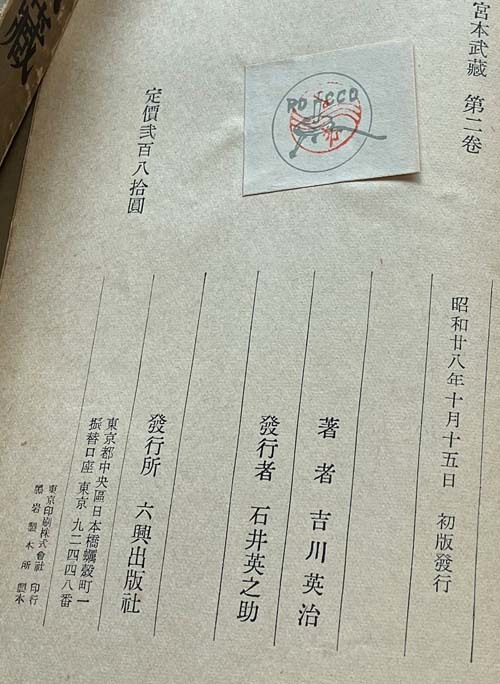 宮本武藏 第二卷
ROCCO
定價弐百八拾圓
昭和廿八年十月十五日 初版發行
著者 吉川英治
發行者 石井英之助
發行所 六興出版社
東京都中央區日本橋蠣殼町一
振替口座 東京 九二四四八番
東京印刷株式會社 印行
黑岩製本所 製本